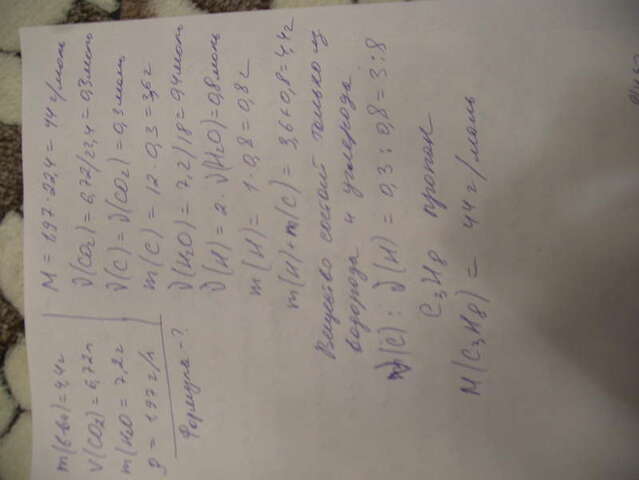 m(в-ва)=4,4г
V(CO2)=6,72л
m(H2O=7,2г
ρ=1,97г/л
Формула-?
M=1,97·22,4=44г/моль
ν(CO2)=6,72/22,4=0,3моль
ν(C)=ν(CO2)=0,3моль
m(C)=12·0,3=3,6г
ν(H2O)=7,2/18=0,4моль
ν(H)=2·ν(H2O)=0,8моль
m(H)=1·0,8=0,8г
m(H)+m(C)=3,6+0,8=4,4г
Вещество состоит только из
водорода и углерода
ν(C):ν(H)=0,3:0,8=3:8
C3H8 пропан
M(C3H8)=44г/моль